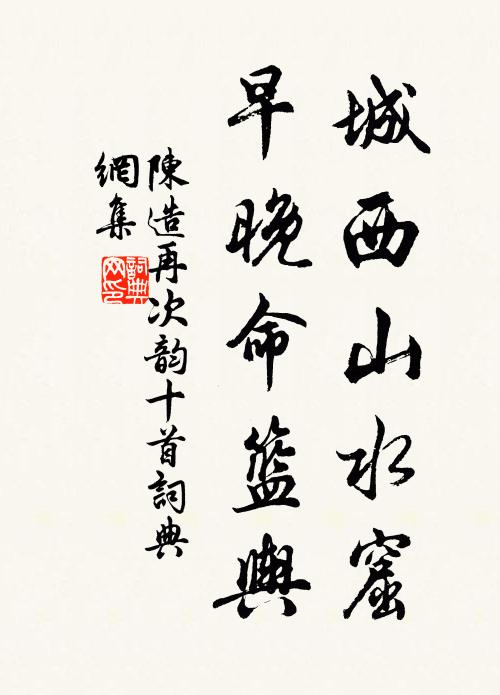 城西山水窟
早晚命籃輿
陳造再次韵十首詞典
網集
詞典
网印